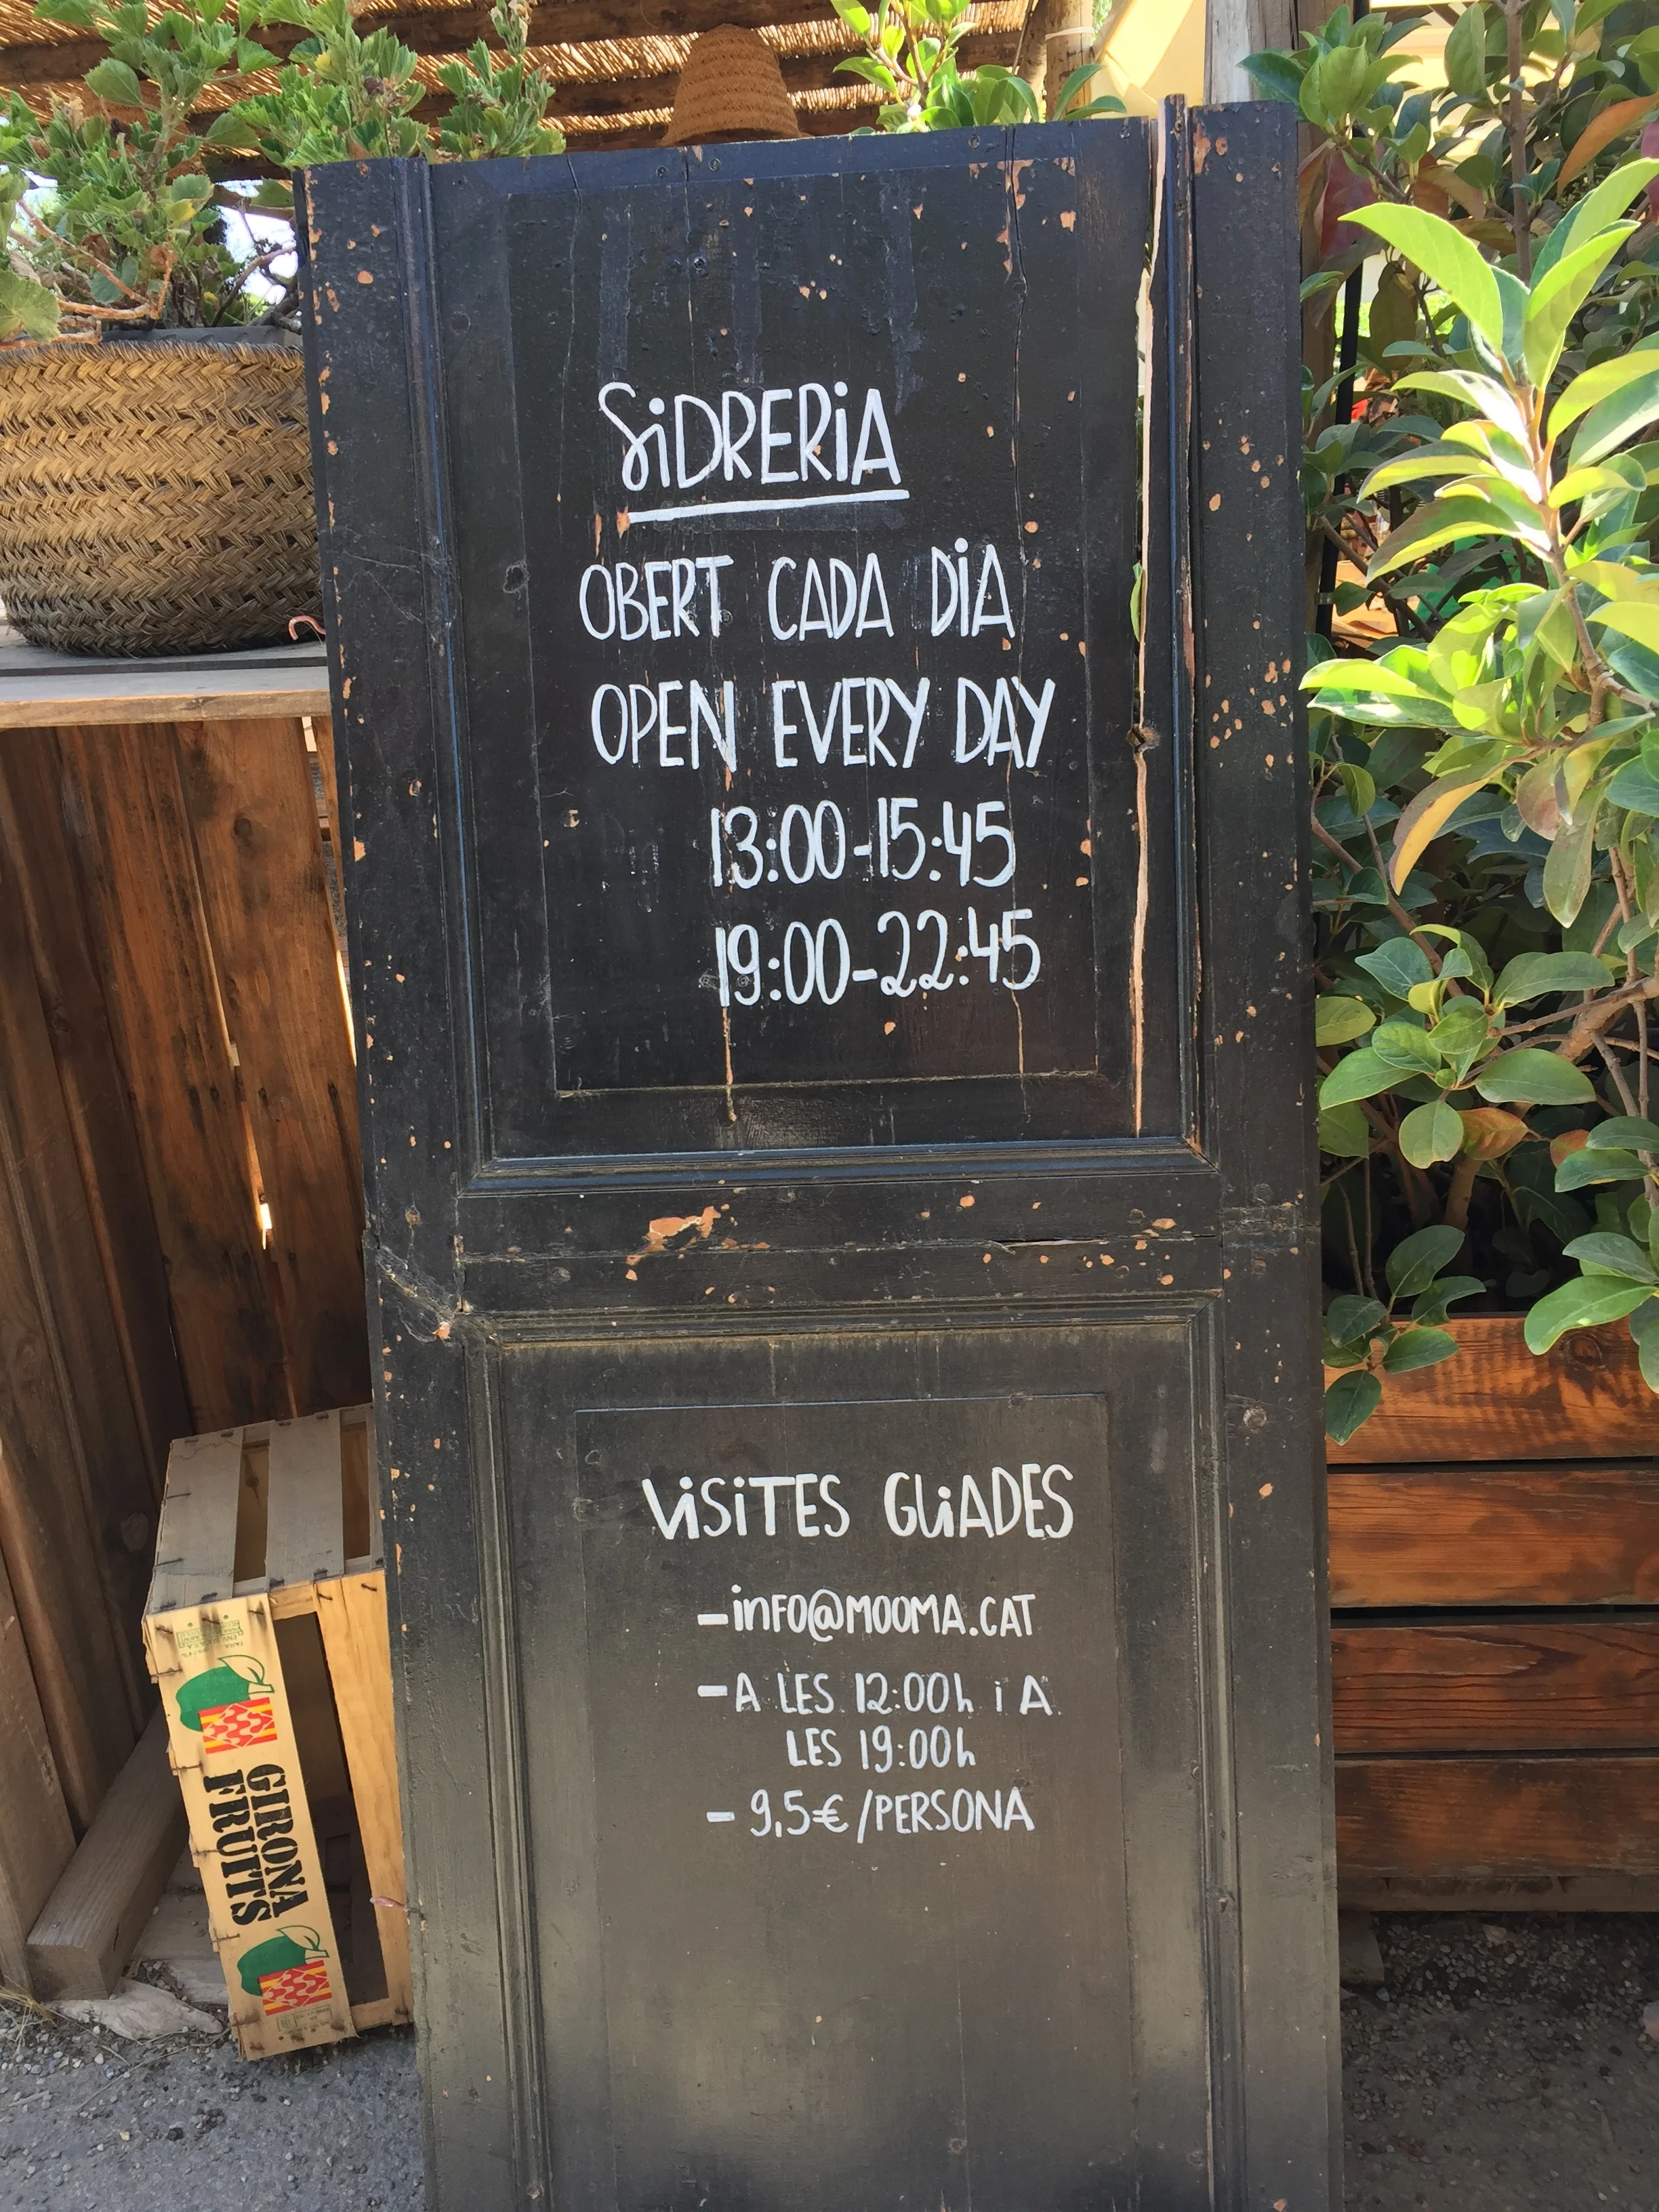 SiDRERiA
OBERT CADA DiA
OPEN EVERY DAY
13:00-15:45
19:00-22:45
ViSiTES GUiADES
-inFO@MOOMA.CAT
-A LES 12:00h i A
LES 19:00h
- 9,5€/PERSONA
GIRONA
FRUITS